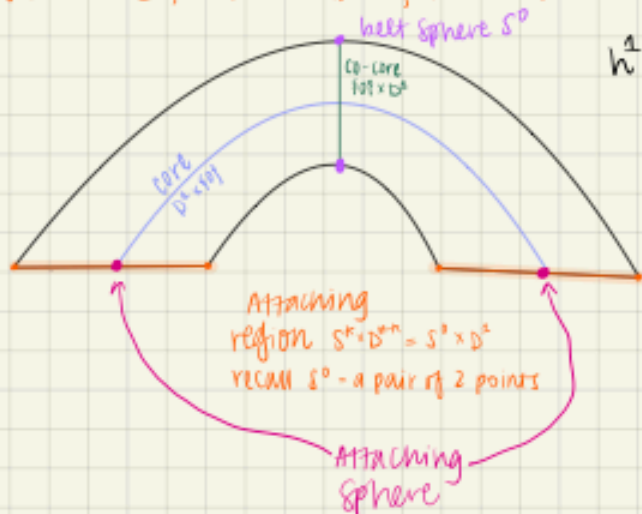 belt sphere S⁰
h¹
co-core
{0} × D¹
core
D¹ × {0}
Attaching
region = S⁰ × D¹
recall S⁰ - a pair of 2 points
Attaching
Sphere